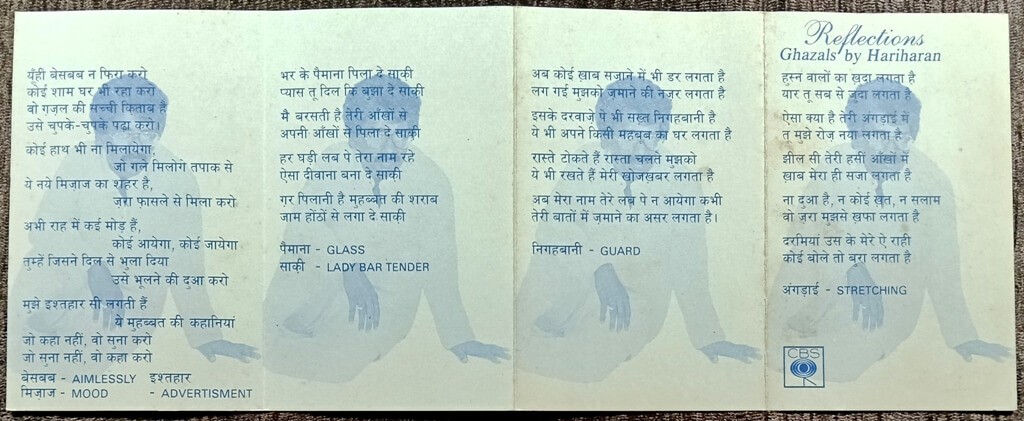 यूँही बेसबब न फिरा करो
कोई शाम घर भी रहा करो
वो ग़ज़ल की सच्ची किताब है
उसे चुपके-चुपके पढा करो।
कोई हाथ भी ना मिलायेगा,
जो गले मिलोगे तपाक से
ये नये मिज़ाज का शहर है,
ज़रा फासले से मिला करो
अभी राह में कई मोड़ हैं,
कोई आयेगा, कोई जायेगा
तुम्हें जिसने दिल से भुला दिया
उसे भूलने की दुआ करो
मुझे इश्तहार सी लगती हैं
ये मुहब्बत की कहानियां
जो कहा नहीं, वो सुना करो
जो सुना नहीं, वो कहा करो
बेसबब - AIMLESSLY इश्तहार
मिज़ाज - MOOD - ADVERTISMENT
भर के पैमाना पिला दे साक़ी
प्यास तू दिल कि बुझा दे साक़ी
मै बरसती है तेरी आँखों से
अपनी आँखों से पिला दे साक़ी
हर घड़ी लब पे तेरा नाम रहे
ऐसा दीवाना बना दे साक़ी
गर पिलानी है मुहब्बत की शराब
जाम होंठों से लगा दे साक़ी
पैमाना - GLASS
साक़ी - LADY BAR TENDER
अब कोई ख़ाब सजाने में भी डर लगता है
लग गई मुझको ज़माने की नज़र लगता है
इसके दरवाज़े पे भी सख़्त निगहबानी है
ये भी अपने किसी महबूब का घर लगता है
रास्ते टोकते हैं रास्ता चलते मुझको
ये भी रखते हैं मेरी खोजख़बर लगता है
अब मेरा नाम तेरे लब पे न आयेगा कभी
तेरी बातों में ज़माने का असर लगता है।
निगहबानी - GUARD
Reflections
Ghazals by Hariharan
हुस्न वालों का ख़ुदा लगता है
यार तू सब से जुदा लगता है
ऐसा क्या है तेरी अंगड़ाई में
तू मुझे रोज़ नया लगता है
झील सी तेरी हसीं आँखों में
ख़ाब मेरा ही सजा लगता है
ना दुआ है, न कोई ख़त, न सलाम
वो ज़रा मुझसे ख़फा लगता है
दरमियां उस के मेरे ऐ राही
कोई बोले तो बुरा लगता है
अंगड़ाई - STRETCHING
CBS